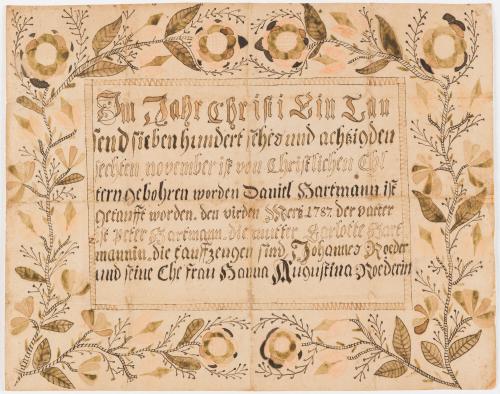 Im Jahr Christi Ein Tau
send sieben hundert sehes und achtzig den
sechten november ist von Christlichen Ehl
tern gebohren worden Daniel Hartmann ist
getaufft worden. den virden Mertz 1787. der vatter
ist Peter Hartmann. die mutter Karlotte Hart
mannin. die tauffzeugen sind Johannes Roeder
und seine Ehe frau Hanna Augustina Roederin